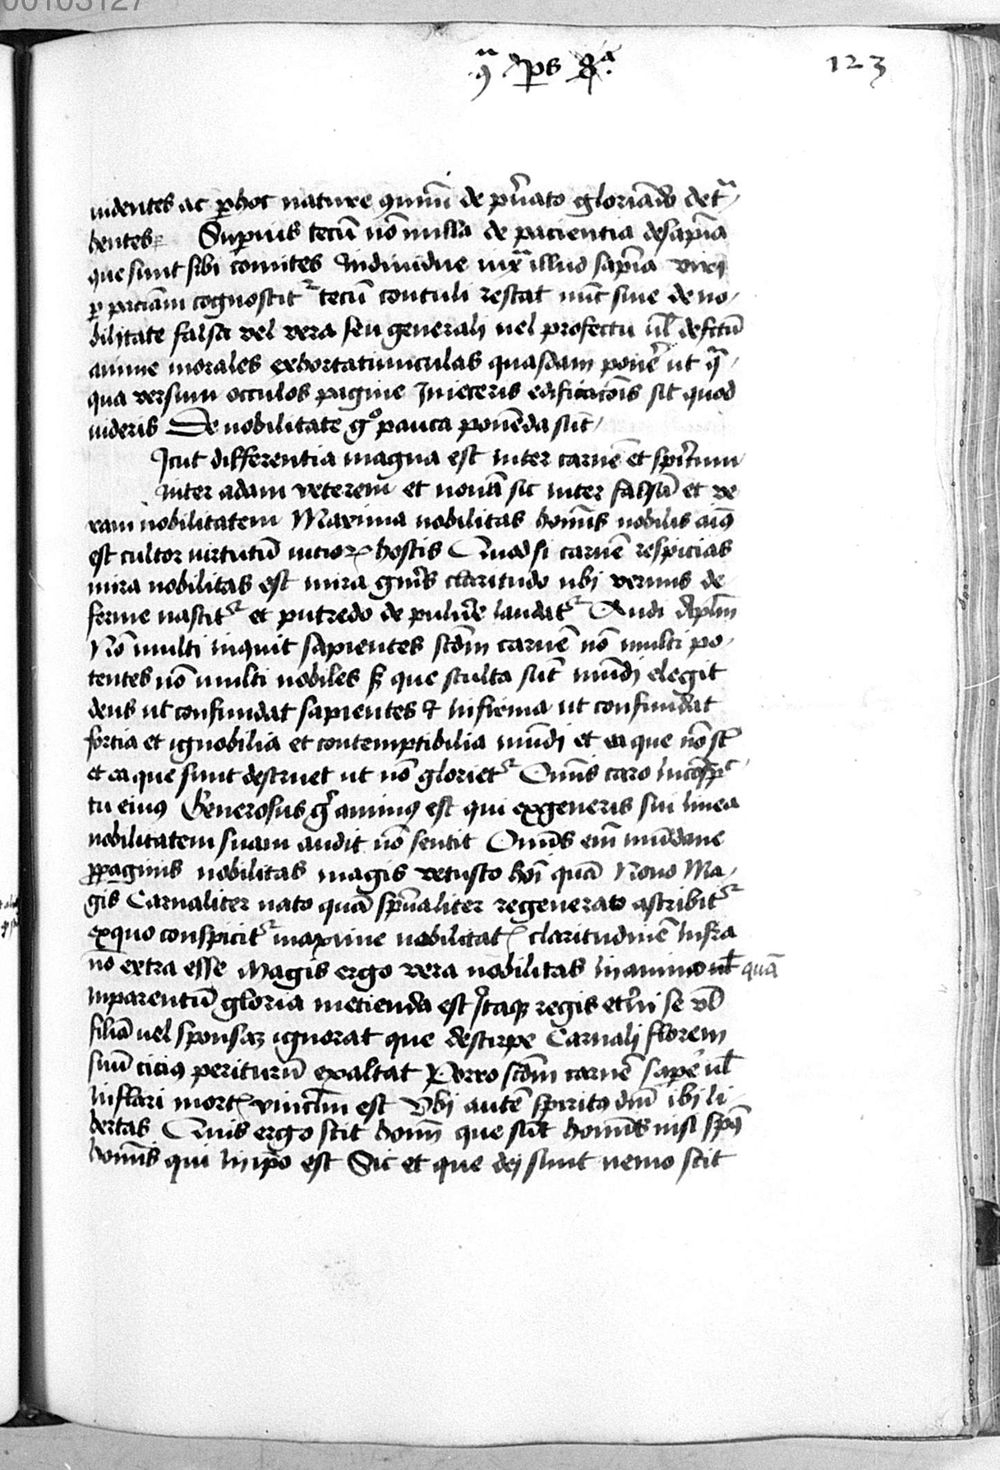 00103127
123
uidentes ac p hoc nature quiuis de p̄uato gloriādo det̄
hentes Suprius tecū nō nulla de paciencia de sapīa
que sunt sibi comites Indiuidue iuxᵃ illud sapīa viri
p paciām cognoscitᵣ tecū contuli restat nūc siue de no
bilitate falsa vel vera seu generali uel profectu ul̄ defctū
anime morales exhortatiunculas quasdam ponē ut qᵃ
qua versum occulos pagine Inieceris edificacōis sit quod
uideris De nobilitate gᵒ pauca ponenda sūt
Icut differentia magna est inter carnē et spiritum
Inter adam veterem et nouū sic inter falsā et ve
ram nobilitatem Maxima nobilitas homīs nobilis aīꝰ
est cultor virtutū uicioꝝ hostis Quod si carnē respicias
mira nobilitas est mira gn̄is claritudo ubi vermis de
ferme nascitᵣ et putredo de puluē laudatᵣ Audi aplm̄
Nō multi inquit sapientes scdm̄ carnē nō multi po
tentes nō multi nobiles sꝫ que stulta sūt mūdi elegit
deus ut confundat sapientes et infirma ut confundat
fortia et ignobilia et contemptibilia mūdi et ea que nō sᵗ
et ea que sunt destruet ut nō glorietᵣ Omīs caro in cōspc̄
tu eiuꝰ Generosus gᵒ animꝰ est qui ex generis sui linea
nobilitatem suam audit nō sentit Omīs em̄ mūdane
ꝓpaginis nobilitas magis vetusto hoī quā Nouo Ma
gis Carnaliter nato quā spūaliter regenerato ascribitᵣ
ex quo conspicitᵣ maxime nobilitatꝭ claritudinē Infra
nō extra esse Magis ergo vera nobilitas in animo ul̄ quā
In parentū gloria metienda est Itaqꝫ regis etn̄i se ul̄
filiā uel sponsaꝫ ignorat que de stirpe Carnali florem
suū ciciꝰ periturū exaltat Porro scdm̄ carnē sape ul̄
Inflari mortꝭ vinclm̄ est Vbi autē spiritꝰ dnī ibi li
bertas Quis ergo scit homī que sūt homīs nisi spūs
homīs qui in ip̄o est Sic et que dei sunt nemo scit